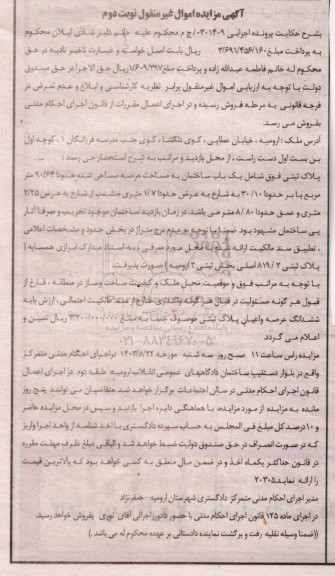 آگهی مزایده اموال غیر منقول نوبت دوم
بشرح حکایت پرونده اجرایی ۰۳۰۱۴۰۹ / ج م محکوم علیه خانم دلبر شادی لیلان محکوم
به پرداخت مبلغ ۳/۶۹۱/۴۵۶/۱۶۰ ریال بابت اصل خواسته و خسارت تاخیر تادیه در حق
محکوم له خانم فاطمه عبداله زاده و پرداخت مبلغ ۱/۶۰۹/۳۹۷ ریال حق الاجرا در حق صندوق
دولت با توجه به ارزیابی اموال غیرمنقول برابر نظریه کارشناسی و ابلاغ و عدم تعرض در
فرجه قانونی به مرحله فروش رسیده و در اجرای اعمال مقررات از قانون اجرای احکام مدنی
بفروش می رسد.
آدرس ملک : ارومیه ، خیابان عطایی ، کوی دلگشا ، کوی جنب مدرسه فرزانگان ۱ ، کوچه اول
بن بست اول دست راست ، از محل بازدید و مراتب به شرح استحضار می رسد :
پلاک ثبتی فوق شامل یک باب ساختمان به مساحت عرصه مساحی شده حدودا ۹۰/۶۴ متر
مربع با بر حدودا ۱۰/۳۰ به شارع به عرض حدودا ۱/۷ متری منشعب از شارع به عرض ۲/۲۵
متری و عمق حدودا ۸/۸۰ متر می باشد. در زمان بازدید ساختمان موجود تخریب و صرفا آثار
پی ساختمان مشهود بود
، تطبیق سند مالکیت ارائه شده با محل مورد معرفی ، به استناد مدارک ابرازی همسایه (
پلاک ثبتی ۲ / ۸۱۹ اصلی بخش ثبتی ۲ ارومیه ) صورت پذیرفت
با توجه به مراتب فوق و موقعیت محل ملک و کیفیت ساخت وساز در منطقه ، فارغ از
قبول هرگونه مسئولیت در قبال هرگونه واگذاری خارج از سند مالکیت احتمالی ، ارزش پایه
ششدانگ عرصه واعیان پلاک ثبتی موصوف جمعا به مبلغ ۳/۲۰۰/۰۰۰/۰۰۰ ریال تعیین و
اعلام می گردد
پایگاه اطلاع رسانی مناقصه و مزایده
۰۲۱-۸۸۳۴۹۶۷۰-۵
مزایده راس ساعت ۱۱ صبح روز سه شنبه مورخه ۱۴۰۳/۸/۲۲ دراجرای احکام مدنی متمرکز
واقع در بلوار دستغیب ساختمان دادگاههای عمومی انقلاب ارومیه طبقه دوم در اجرای اعمال
قانون اجرای احکام مدنی در سالن اجتماعات برگزار خواهد شد متقاضیان می توانند پنج روز
مانده به مزایده از مورد مزایده، با هماهنگی دایره اجرا بازدید و سپس در محل مزایده حاضر
و ۱۰ درصد کل مبلغ فی المجلس به حساب سپرده دادگستری با اخذ شناسه از واحد اجرا واریز
که در صورت انصراف در حق صندوق دولت ضبط خواهد شد و الباقی مبلغ ظرف مهلت مقرره
در قانون حداکثر یکماه اخذ و در ضمن مال متعلق به کسی خواهد بود که بالاترین قیمت
را ارائه نماید. ۲۰۳۰۵
مدیر اجرای احکام مدنی متمرکز دادگستری شهرستان ارومیه - جعفرنژاد
در اجرای ماده ۱۲۵ قانون اجرای احکام مدنی با حضور دادورز اجرائی آقای نوری بفروش خواهد رسید.
((ضمنا وسیله نقلیه رفت و برگشت نماینده دادستانی بر عهده محکوم له می باشد.)